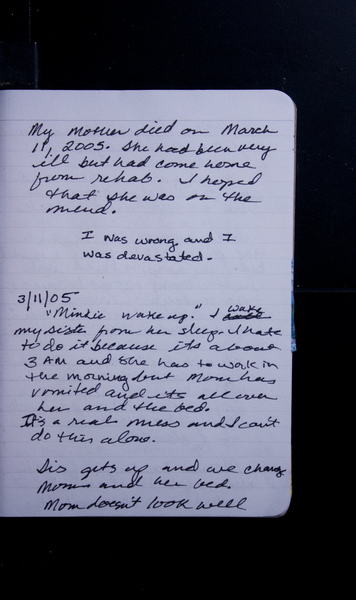 My Mother died on March
11, 2005. She had been very
ill but had come home
from rehab. I hoped
that she was on the
mend.
I was wrong and I
was devastated.
3/11/05
"Minkie wake up." I wake
my sister from her sleep. I hate
to do it because it's about
3 AM and she has to work in
the morning but Mom has
vomited and it's all over
her and the bed.
It's a real mess and I can't
do this alone.
Sis gets up and we change
Mom and her bed.
Mom doesn't look well